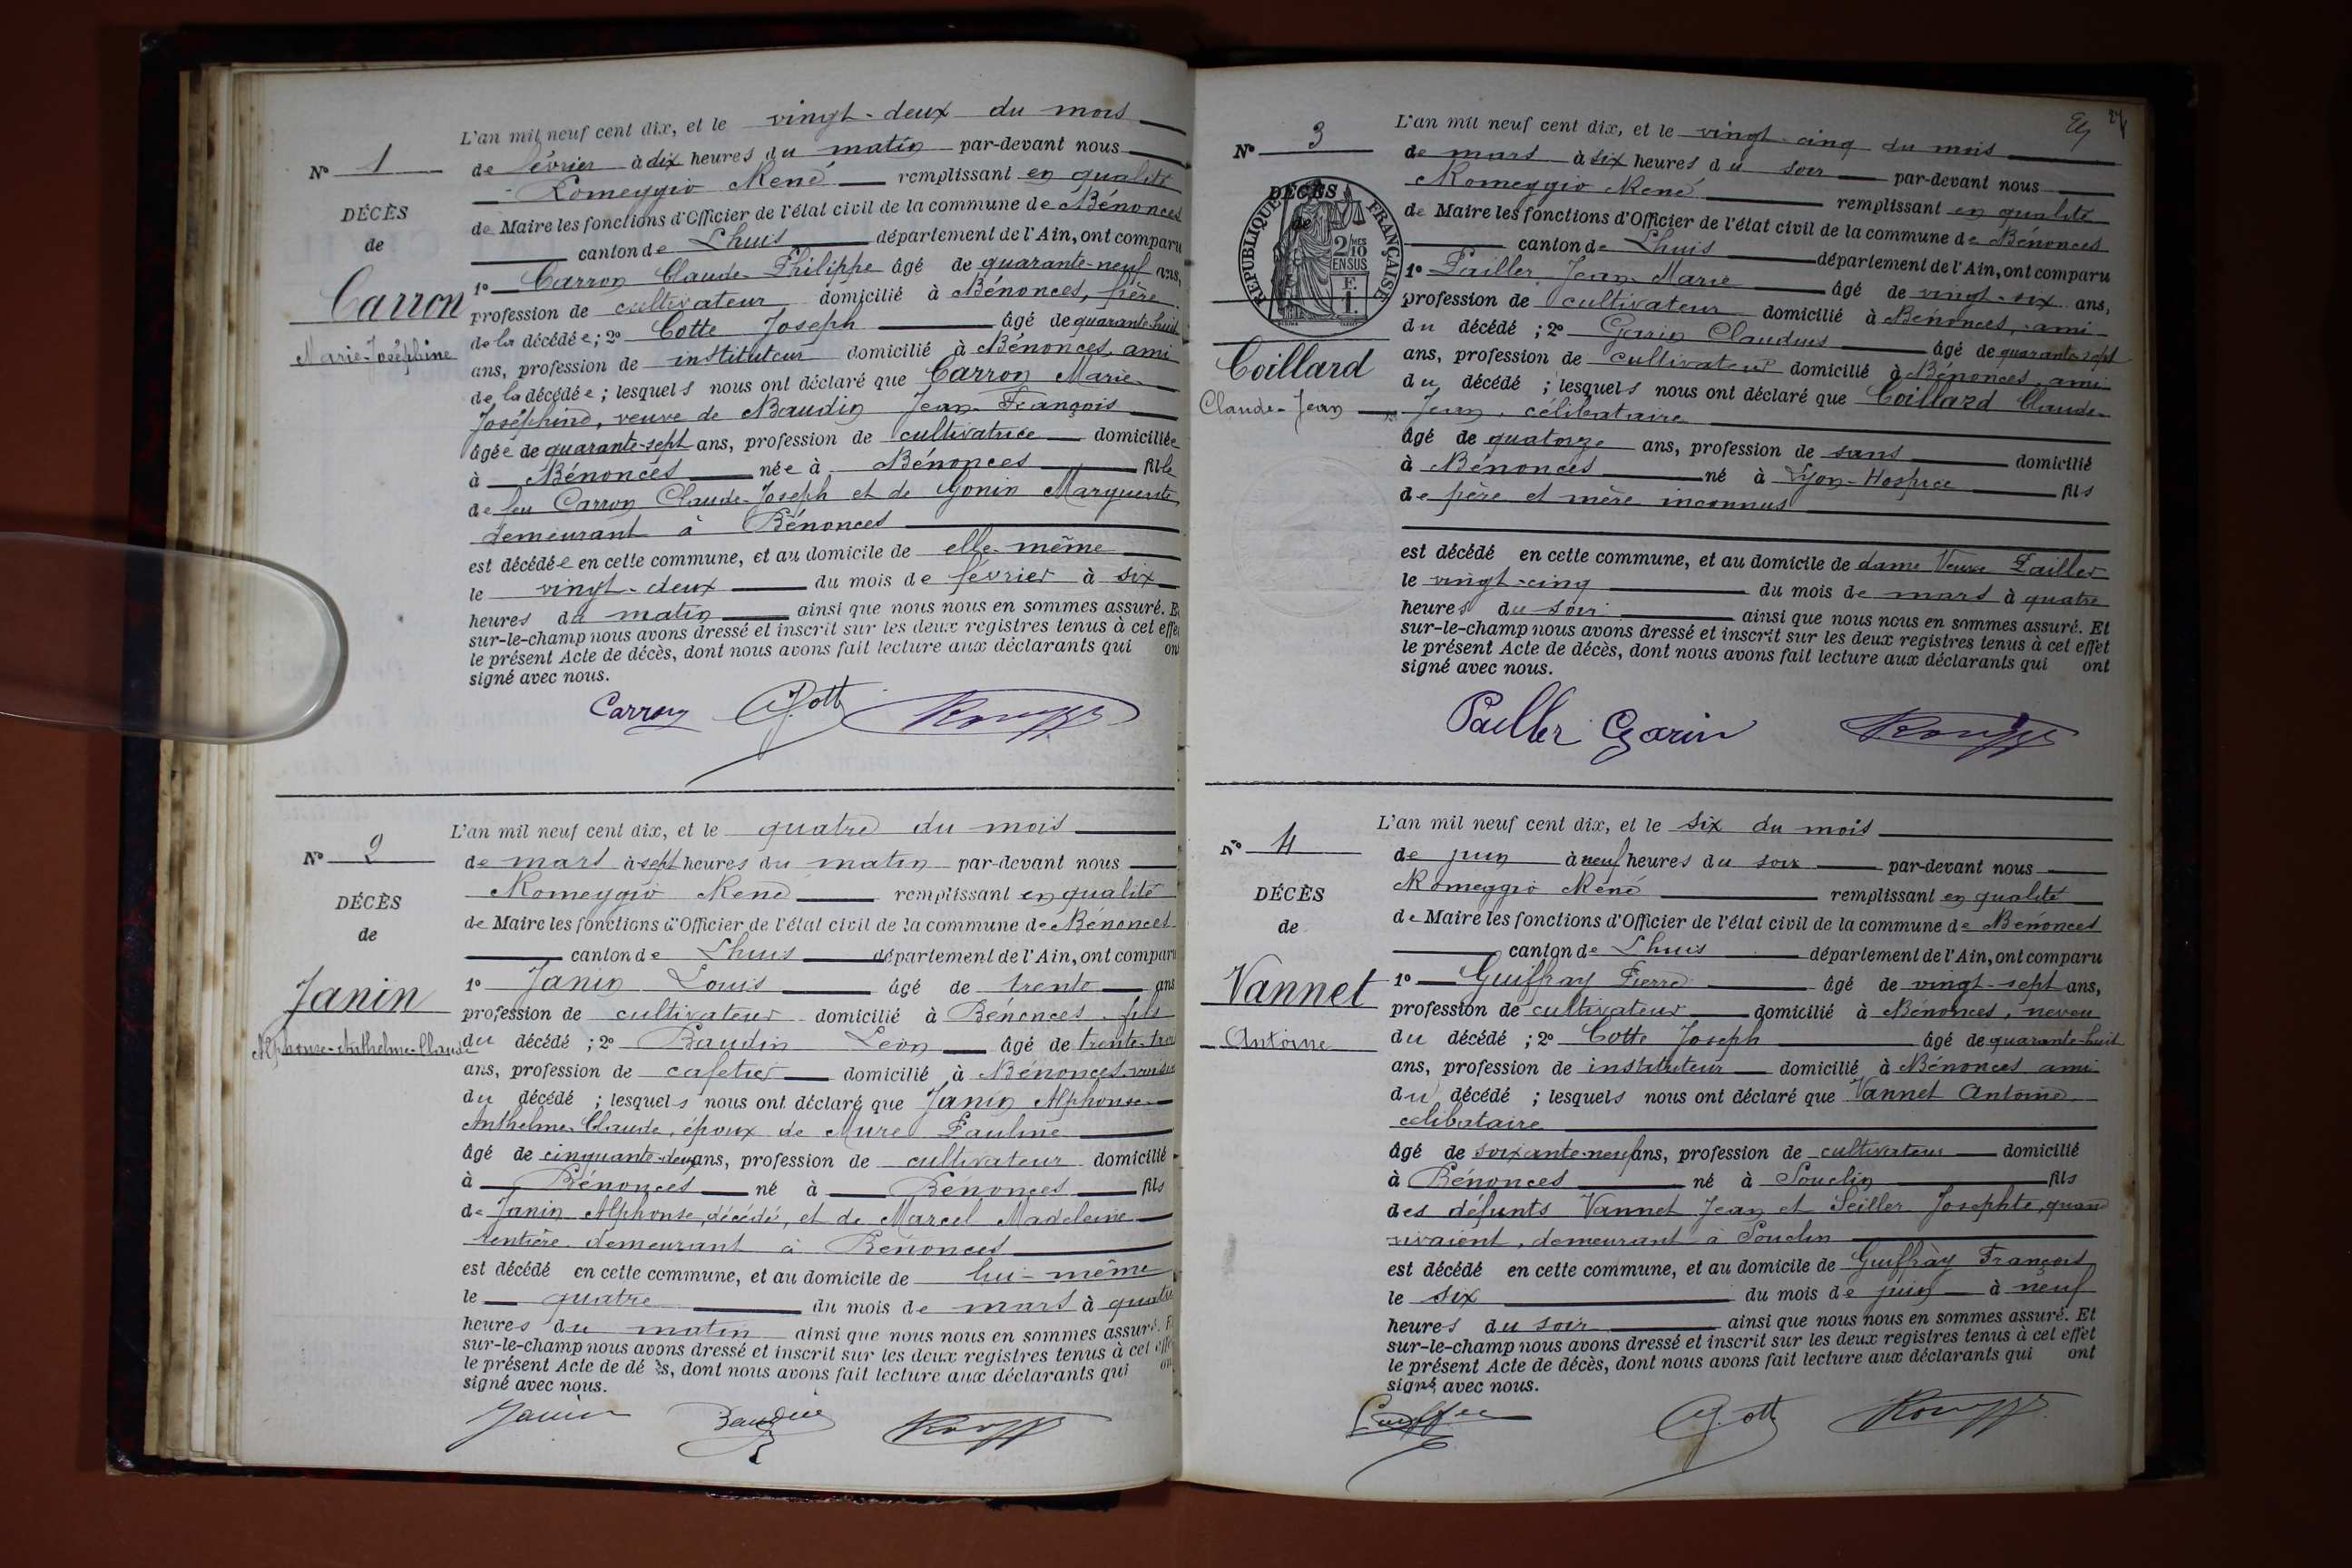 N° 1
DÉCÈS
de
Carron
Marie-Joséphine
L'an mil neuf cent dix, et le vingt-deux du mois
de février à dix heures du matin par-devant nous
Romeggio René remplissant en qualité
de Maire les fonctions d'Officier de l'état civil de la commune de Bénonces
canton de Lhuis département de l'Ain, ont comparu
1° Carron Claude-Philippe âgé de quarante-neuf ans,
profession de cultivateur domicilié à Bénonces, frère
de la décédée; 2° Cotte Joseph âgé de quarante-huit
ans, profession de instituteur domicilié à Bénonces, ami
de la décédée; lesquels nous ont déclaré que Carron Marie-
Joséphine, veuve de Baudin Jean-François
âgée de quarante-sept ans, profession de cultivatrice domiciliée
à Bénonces née à Bénonces fille
de feu Carron Claude-Joseph et de Gonin Marguerite
demeurant à Bénonces
est décédée en cette commune, et au domicile de elle-même
le vingt-deux du mois de février à six
heures du matin ainsi que nous nous en sommes assuré. Et
sur-le-champ nous avons dressé et inscrit sur les deux registres tenus à cet effet
le présent Acte de décès, dont nous avons fait lecture aux déclarants qui ont
signé avec nous.
Carron J. Cotte
N° 2
DÉCÈS
de
Janin
Alphonse-Anthelme-Claude
L'an mil neuf cent dix, et le quatre du mois
de mars à sept heures du matin par-devant nous
Romeggio René remplissant en qualité
de Maire les fonctions d'Officier de l'état civil de la commune de Bénonces
canton de Lhuis département de l'Ain, ont comparu
1° Janin Louis âgé de trente ans
profession de cultivateur domicilié à Bénonces, fils
du décédé; 2° Baudin Léon âgé de trente-trois
ans, profession de cafetier domicilié à Bénonces, voisin
du décédé; lesquels nous ont déclaré que Janin Alphonse-
Anthelme-Claude, époux de Mure Pauline
âgé de cinquante-deux ans, profession de cultivateur domicilié
à Bénonces né à Bénonces fils
de Janin Alphonse, décédé, et de Marcel Madeleine
rentière demeurant à Bénonces
est décédé en cette commune, et au domicile de lui-même
le quatre du mois de mars à quatre
heures du matin ainsi que nous nous en sommes assuré. Et
sur-le-champ nous avons dressé et inscrit sur les deux registres tenus à cet effet
le présent Acte de décès, dont nous avons fait lecture aux déclarants qui ont
signé avec nous.
Janin Baudin
24
N° 3
DÉCÈS
de
RÉPUBLIQUE FRANÇAISE
2/10 MES
EN SUS
F.
1.
Coillard
Claude-Jean
L'an mil neuf cent dix, et le vingt-cinq du mois
de mars à six heures du soir par-devant nous
Romeggio René remplissant en qualité
de Maire les fonctions d'Officier de l'état civil de la commune de Bénonces
canton de Lhuis département de l'Ain, ont comparu
1° Pailler Jean-Marie âgé de vingt-six ans,
profession de cultivateur domicilié à Bénonces, ami
du décédé; 2° Garin Claudius âgé de quarante-sept
ans, profession de cultivateur domicilié à Bénonces, ami
du décédé; lesquels nous ont déclaré que Coillard Claude-
Jean, célibataire
âgé de quatorze ans, profession de sans domicilié
à Bénonces né à Lyon-Hospice fils
de père et mère inconnus
est décédé en cette commune, et au domicile de dame Veuve Pailler
le vingt-cinq du mois de mars à quatre
heures du soir ainsi que nous nous en sommes assuré. Et
sur-le-champ nous avons dressé et inscrit sur les deux registres tenus à cet effet
le présent Acte de décès, dont nous avons fait lecture aux déclarants qui ont
signé avec nous.
Pailler Garin
N° 4
DÉCÈS
de
Vannet
Antoine
L'an mil neuf cent dix, et le six du mois
de juin à neuf heures du soir par-devant nous
Romeggio René remplissant en qualité
de Maire les fonctions d'Officier de l'état civil de la commune de Bénonces
canton de Lhuis département de l'Ain, ont comparu
1° Guiffray Pierre âgé de vingt-sept ans,
profession de cultivateur domicilié à Bénonces, neveu
du décédé; 2° Cotte Joseph âgé de quarante-huit
ans, profession de instituteur domicilié à Bénonces ami
du décédé; lesquels nous ont déclaré que Vannet Antoine
célibataire
âgé de soixante-neuf ans, profession de cultivateur domicilié
à Bénonces né à Souclin fils
des défunts Vannet Jean et Seiller Josephte, quand
vivaient, demeurant à Souclin
est décédé en cette commune, et au domicile de Guiffray François
le six du mois de juin à neuf
heures du soir ainsi que nous nous en sommes assuré. Et
sur-le-champ nous avons dressé et inscrit sur les deux registres tenus à cet effet
le présent Acte de décès, dont nous avons fait lecture aux déclarants qui ont
signé avec nous.
J. Cotte